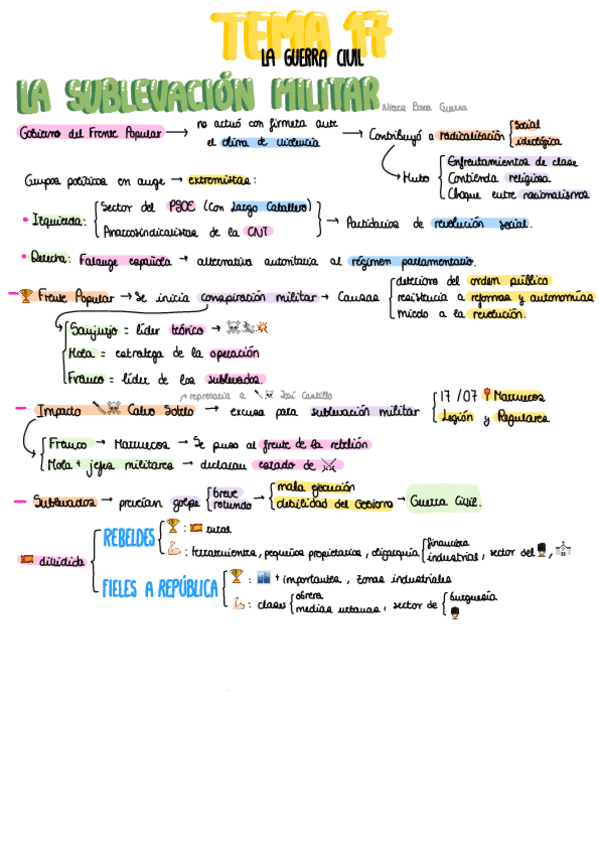 TEMA 17
LA GUERRA CIVIL
LA SUBLEVACIÓN MILITAR
Gobierno del Frente Popular → no actuó con firmeza ante el clima de violencia → Contribuyó a radicalización { social ideológica
Hubo { Enfrentamientos de clase
Contienda religiosa
Choque entre nacionalismos
Grupos políticos en auge → extremistas:
• Izquierda: { Sector del PSOE (con Largo Caballero)
Anarcosindicalistas de la CNT } → Partidarios de revolución social.
• Derecha: Falange española → alternativa autoritaria al régimen parlamentario.
– 🏆 Frente Popular → Se inicia conspiración militar → Causas { deterioro del orden público
resistencia a reformas y autonomías
miedo a la revolución.
Sanjurjo = líder teórico →
Mola = estratega de la operación
Franco = líder de los sublevados.
→ represaria a José Castillo
– Impacto Calvo Sotelo → excusa para sublevación militar { 17/07 📍Marruecos
Legión y Regulares
Franco → Marruecos → Se puso al frente de la rebelión
Mola + jefes militares → declaran estado de ⚔
– Sublevados → preveían golpe { breve rotundo → { mala ejecución
debilidad del Gobierno → Guerra Civil.
– 🇪🇸 dividida
REBELDES { 🏆 : 🇪🇸 rural
💪 : terratenientes, pequeños propietarios, oligarquía { financiera industrial, sector del 💂, ⛪
FIELES A REPÚBLICA { 🏆 : 🏙 + importantes, zonas industriales
💪 : clases { obrera medias urbanas, sector de { burguesía 💂